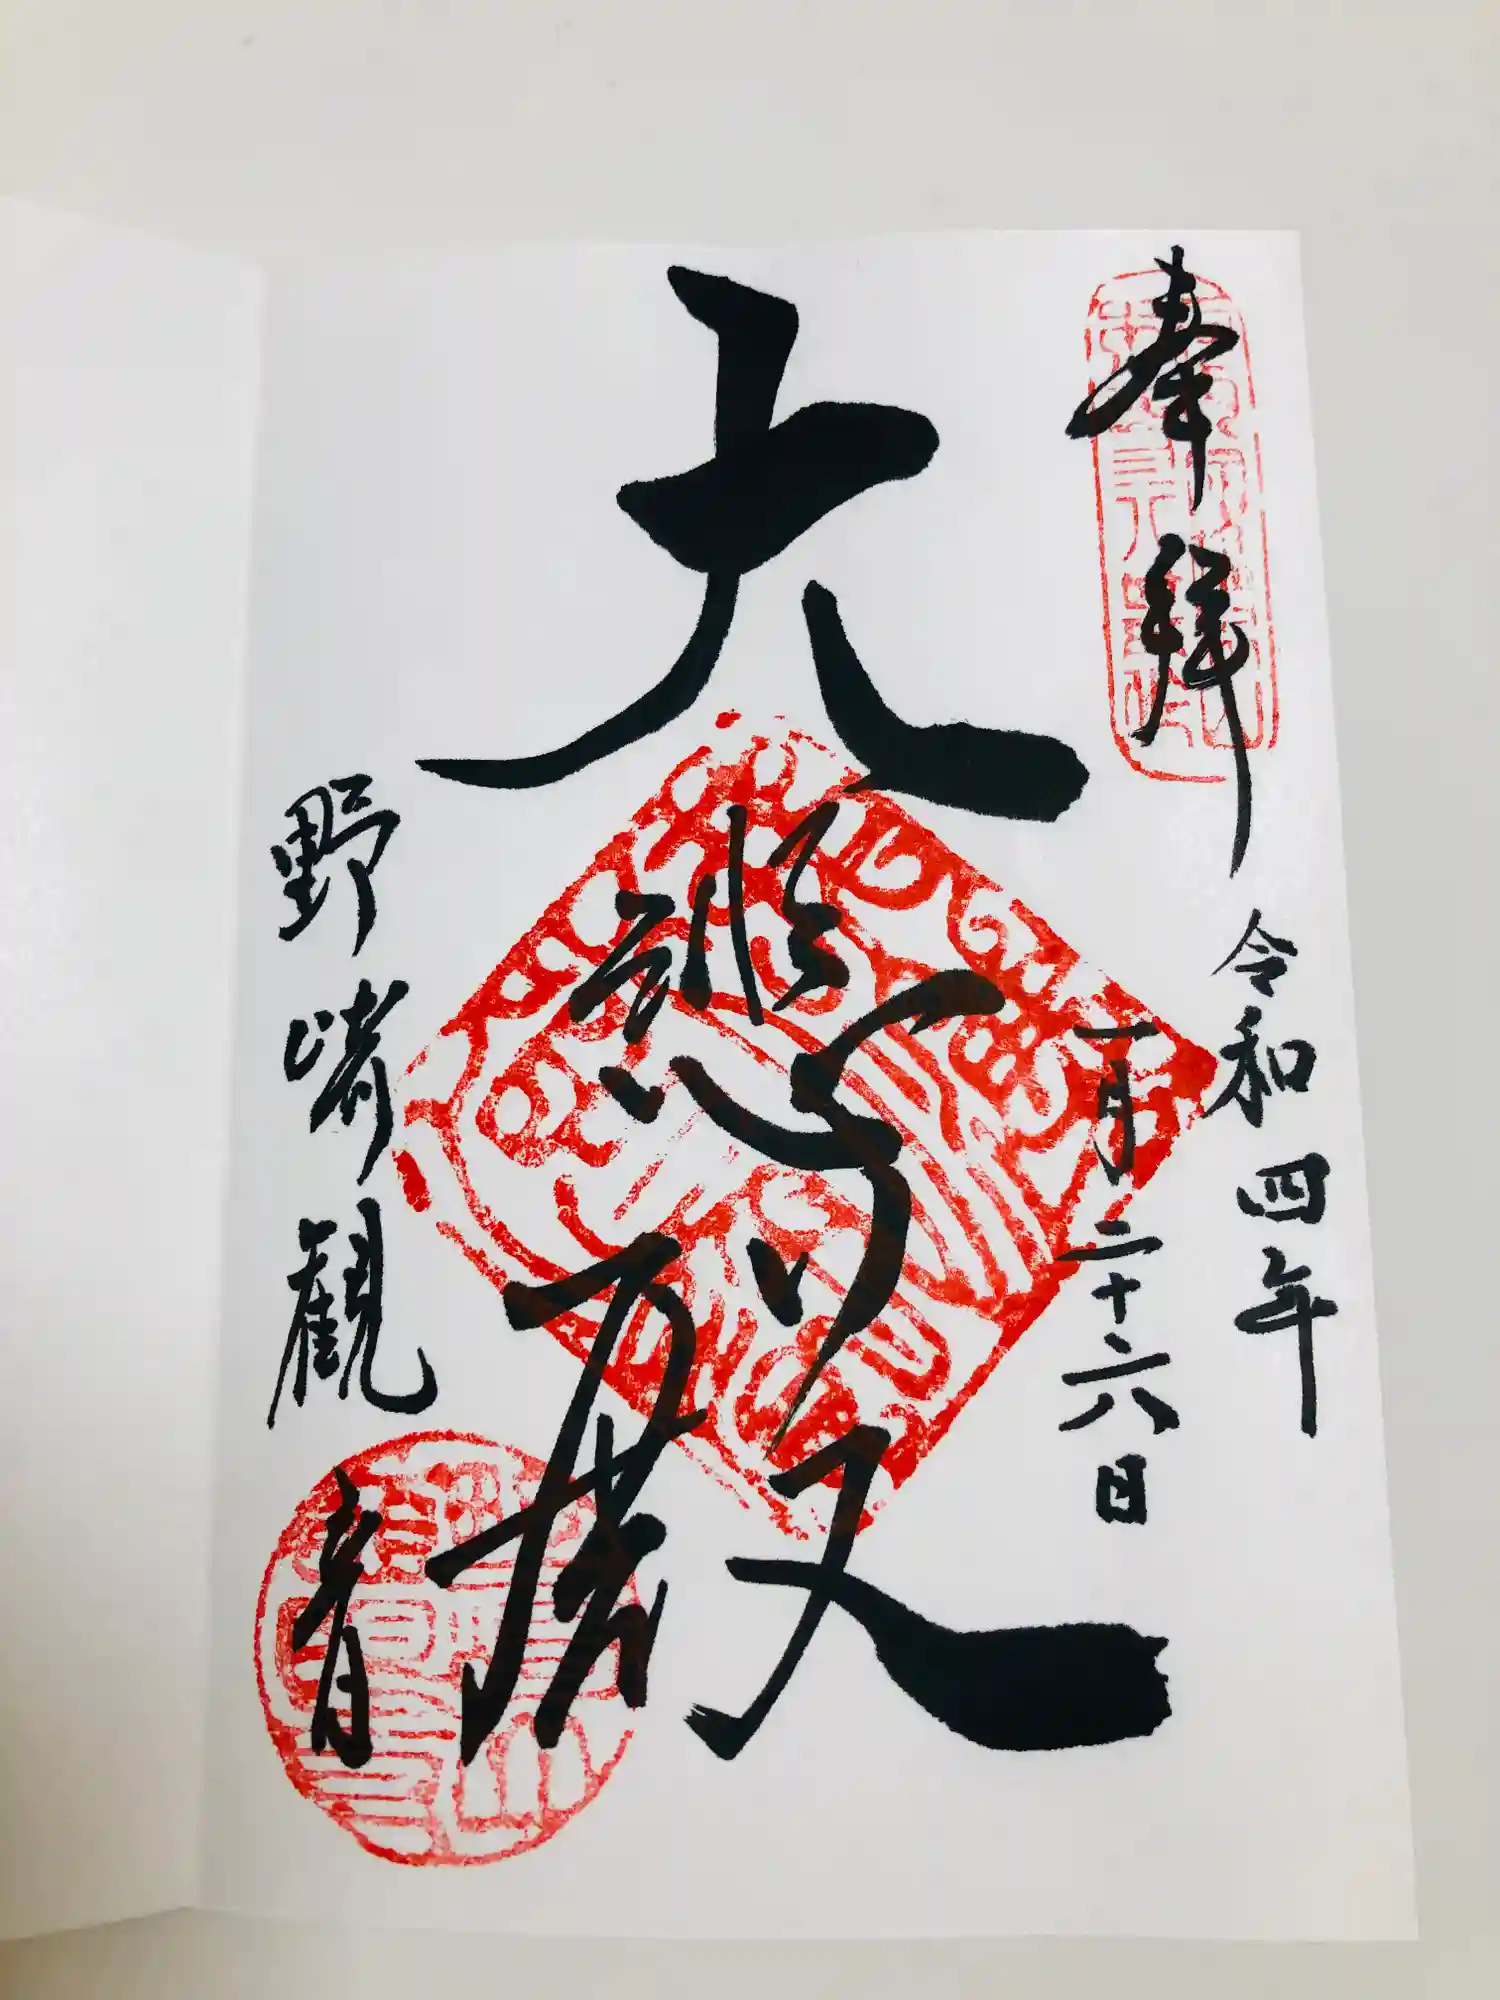 奉拝
令和四年
一月二十六日
大悲殿
野崎観音